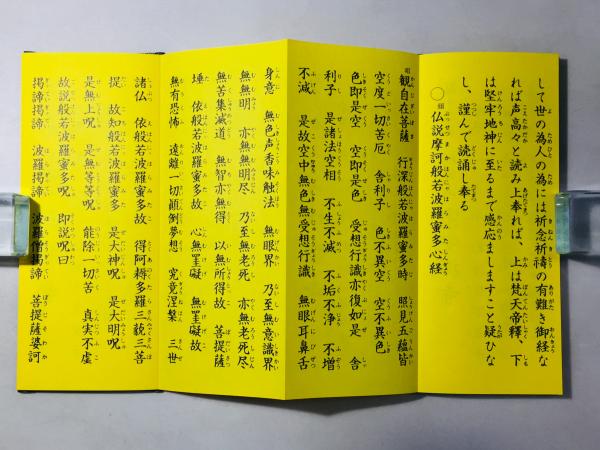 して世の為人の為には祈念祈祷の有難き御経な
れば声高々と読み上奉れば、上は梵天帝釋、下
は堅牢地神に至るまで感応ましますこと疑ひな
し、謹んで読誦し奉る
〇 仏説摩訶般若波羅蜜多心経
観自在菩薩 行深般若波羅蜜多時 照見五蘊皆
空度一切苦厄 舎利子 色不異空 空不異色
色即是空 空即是色 受想行識亦復如是 舎
利子 是諸法空相 不生不滅 不垢不浄 不増
不減 是故空中無色無受想行識 無眼耳鼻舌
身意 無色声香味触法 無眼界 乃至無意識界
無無明 亦無無明尽 乃至無老死 亦無老死尽
無苦集滅道 無智亦無得 以無所得故 菩提薩
埵 依般若波羅蜜多故 心無罣礙 無罣礙故
無有恐怖 遠離一切顛倒夢想 究竟涅槃 三世
諸仏 依般若波羅蜜多故 得阿耨多羅三藐三菩
提 故知般若波羅蜜多 是大神呪 是大明呪
是無上呪 是無等等呪 能除一切苦 真実不虚
故説般若波羅蜜多呪 即説呪曰
掲諦掲諦 波羅掲諦 波羅僧掲諦 菩提薩婆訶